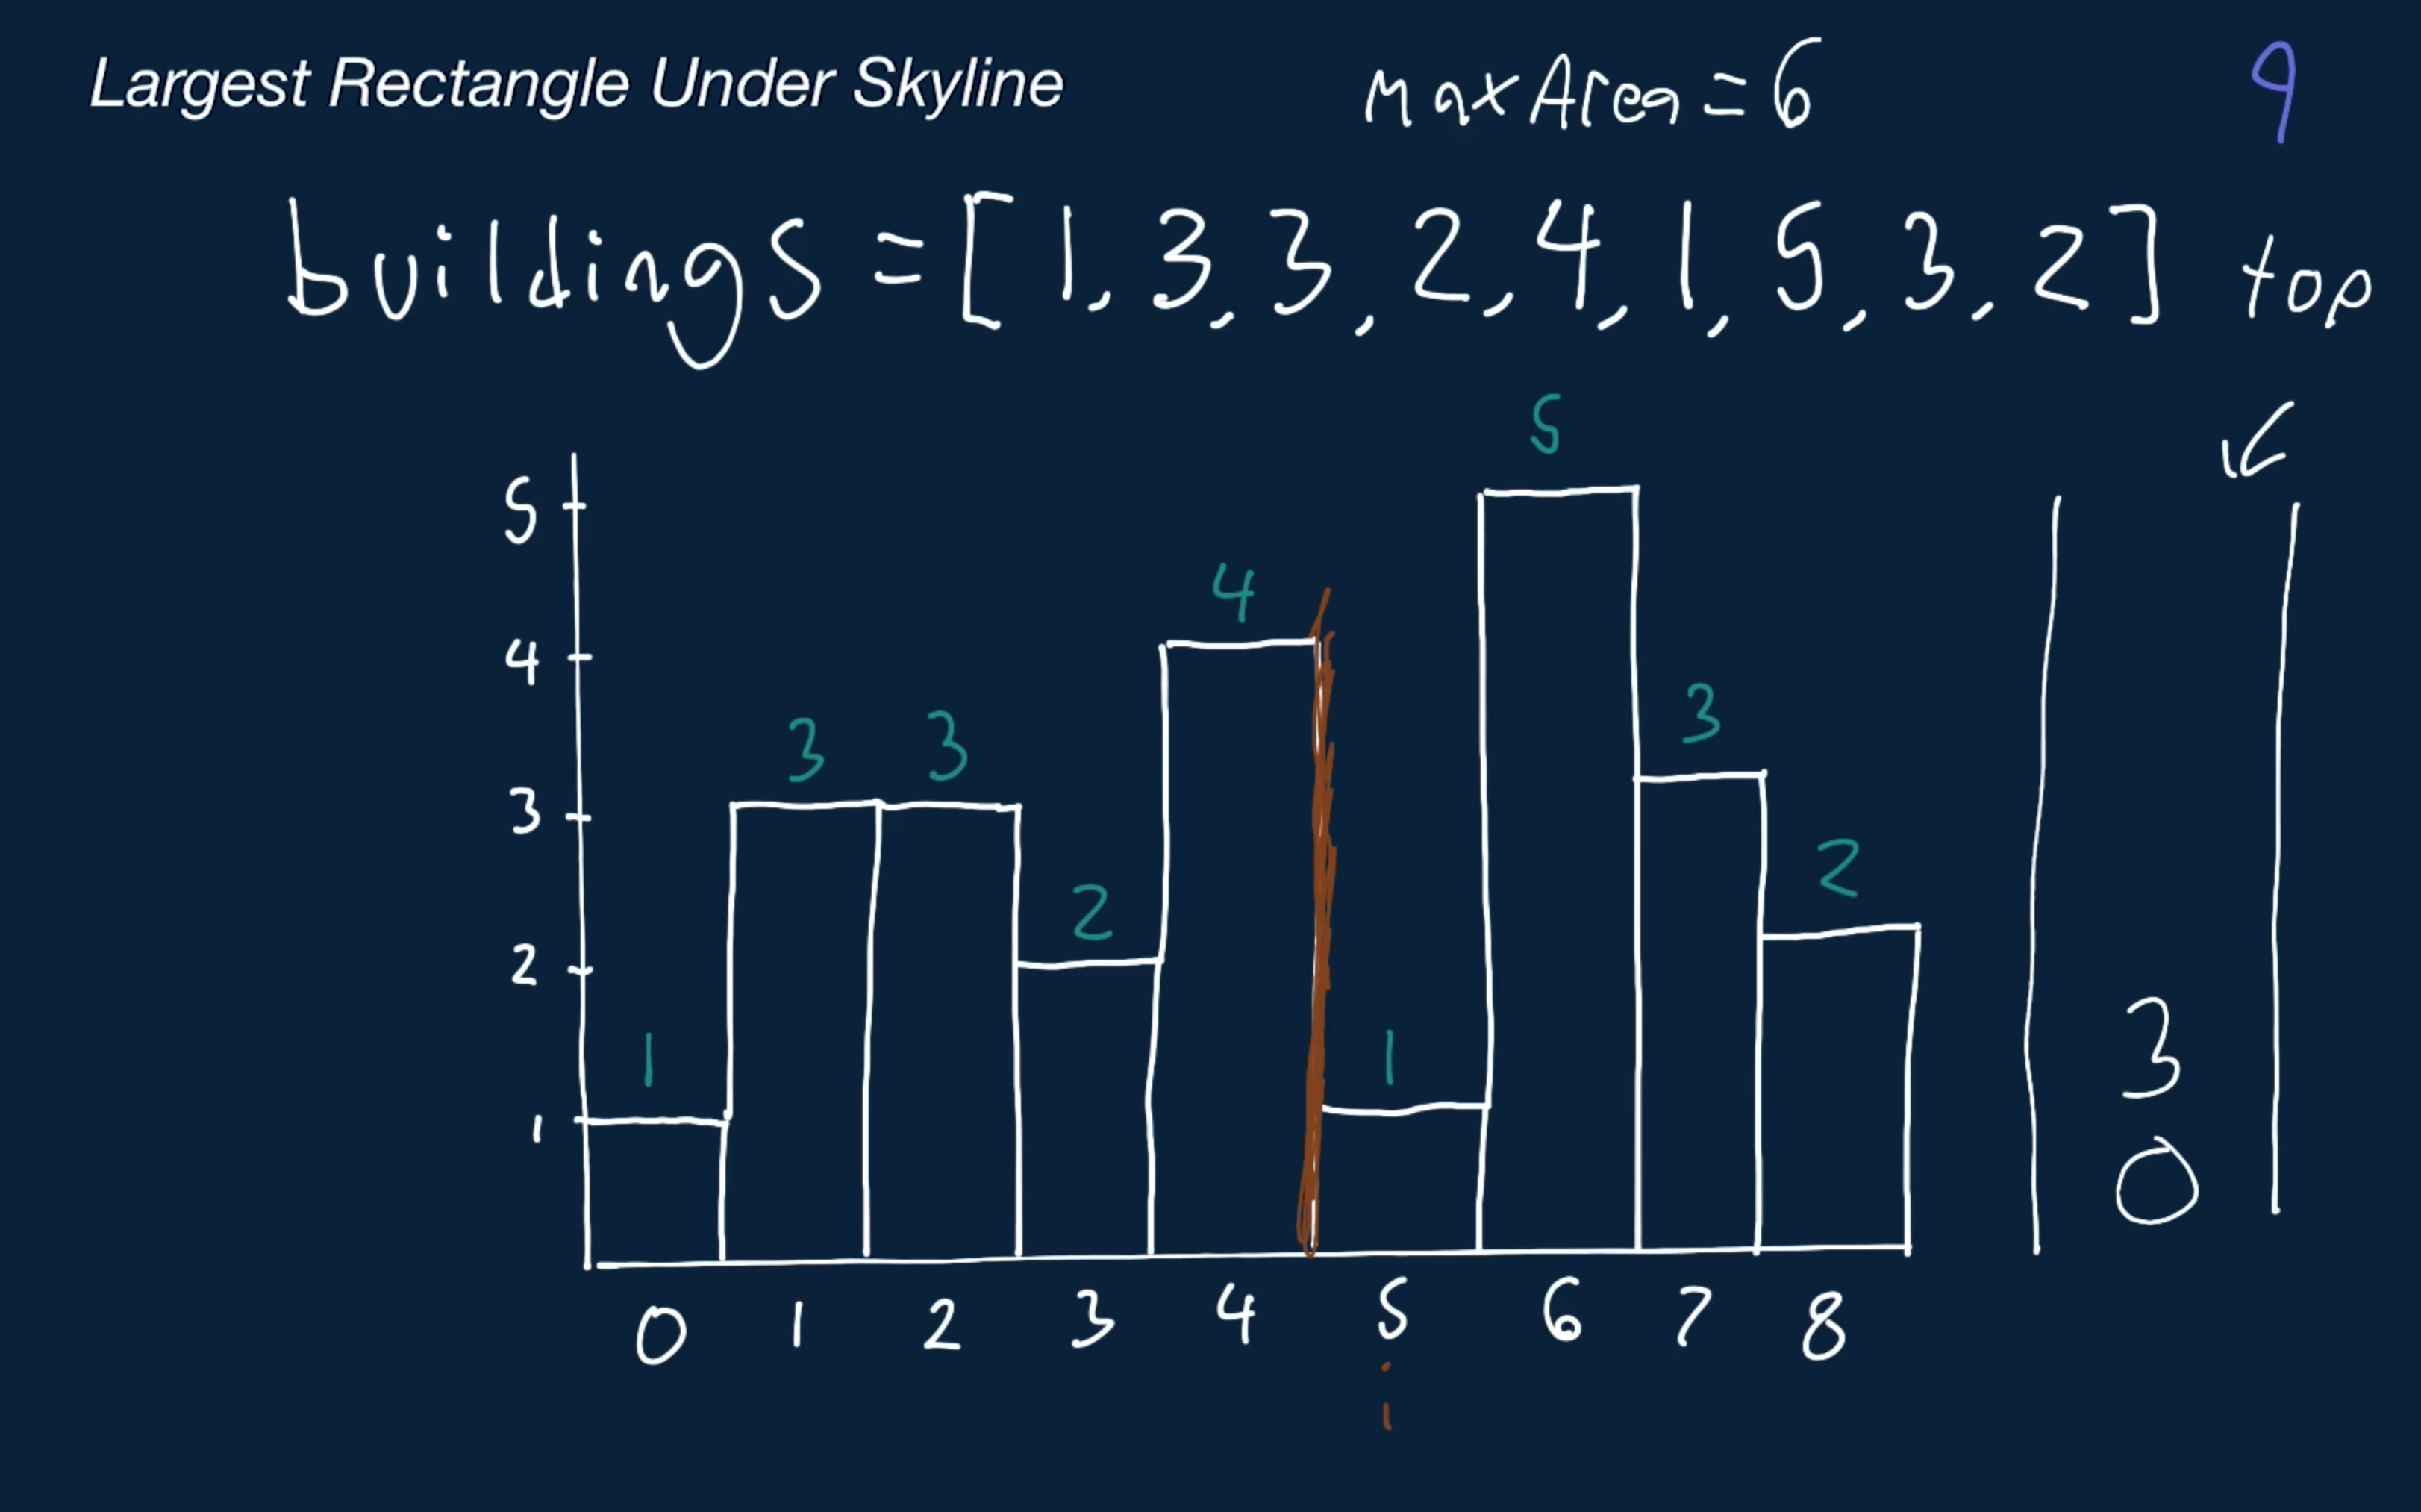 Largest Rectangle Under Skyline
MaxArea = 6
9
buildings = [1, 3, 3, 2, 4, 1, 5, 3, 2] top
5
5
4
4
3
3
3
3
2
2
2
3
1
1
1
0
0 1 2 3 4 5 6 7 8
i